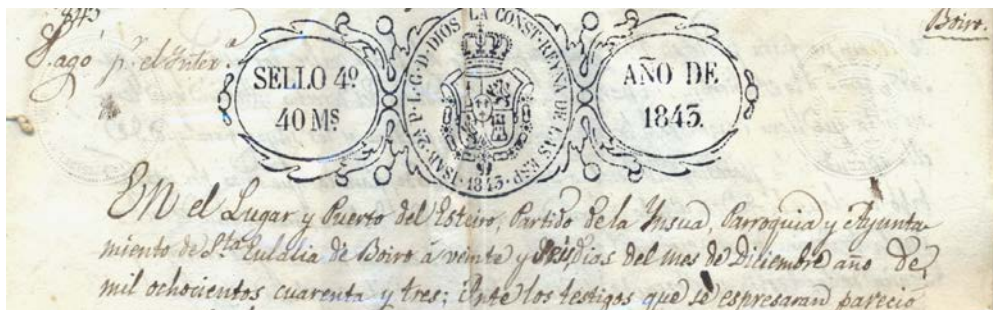 1843
Pagó pr. el Inter.º
Boiro.
SELLO 4º
40 Ms
ISAB. 2ª P. L. G. D. DIOS Y LA CONST. REYNA DE LAS ESP.
·1843·
AÑO DE
1843.
EN el Lugar y Puerto del Esteiro, Partido de la Ynsua, Parroquia y Ayunta-
miento de Sta Eulalia de Boiro à veinte y seis dias del mes de Diciembre año de
mil ochocientos cuarenta y tres; Ante los testigos que se espresaran pareció